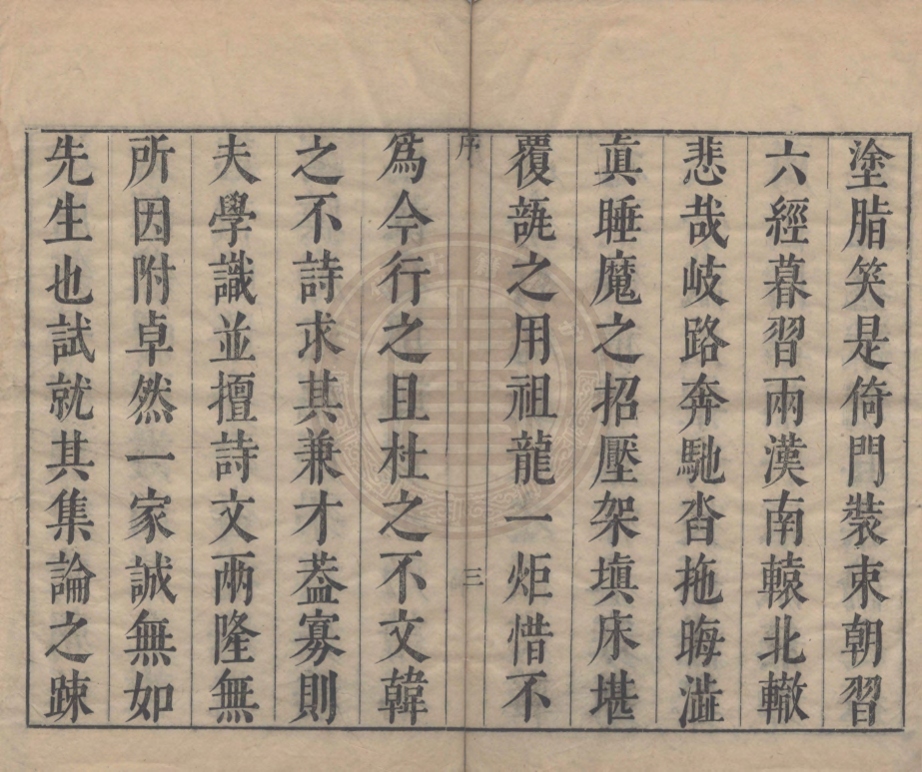 塗脂笑是倚門裝束朝習
六經暮習兩漢南轅北轍
悲哉岐路奔馳沓拖晦澁
眞睡魔之招壓架塡床堪
覆瓿之用祖龍一炬惜不
序
三
爲今行之且杜之不文韓
之不詩求其兼才葢寡則
夫學識並擅詩文兩隆無
所因附卓然一家誠無如
先生也試就其集論之踈